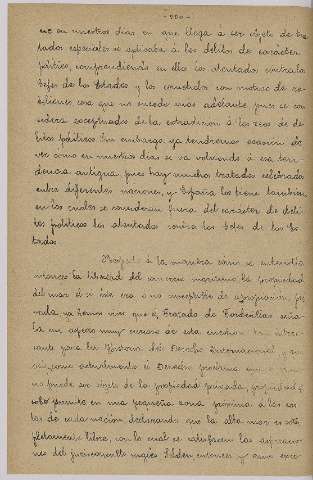 - 500 -
que en nuestros dias en que llega á ser objeto de tra
tados especiales se aplicaba á los delitos de caracter
político, comprendiendo en ellos los atentados contra los
Jefes de los Estados y los cometidos con motivo de re
beliones cosa que no sucede mas adelante pues se con
sidera exceptuados de la extradicion á los reos de de
litos políticos sin embargo, ya tendremos ocasion de
ver como en nuestros dias se va volviendo á esa ten
dencia antigua, pues hay muchos tratados celebrados
entre diferentes naciones, y España los tiene tambien
en los cuales se consideran fuera del caracter de deli
tos políticos los atentados contra los Jefes de los Es
tados.
Respecto á la manera como se entendia
entonces la libertad del comercio maritimo la propiedad
del mar si este era o no susceptible de apropiacion pri
vada, ya hemos visto que el Tratado de Tordesillas seña
la un aspecto muy curioso de esta cuestion tan intere
sante para la Historia del Derecho Internacional y
como actualmente el Derecho proclama que el mar
no puede ser objeto de la propiedad privada,
solo permite en una pequeña zona proxima á las cos
tas de cada nacion declarando que la alta mar es com
pletamente libre, con lo cual se satisfacen las aspiracio
nes del jurisconsulto inglés Selden entonces, y como